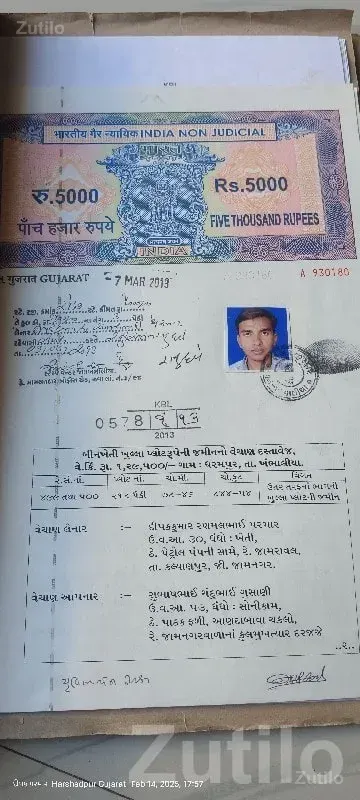 Zutilo
Zutilo
भारतीय गैर न्यायिक INDIA NON JUDICIAL
रु.5000
Rs.5000
पाँच हजार रुपये
FIVE THOUSAND RUPEES
INDIA
गुजरात GUJARAT
7 MAR 2013
A 930180
KBL
0578
2013
બીનખેતી ખુલ્લા પ્લોટરૂપેની જમીનનો વેચાણ દસ્તાવેજ,
વે.કિં. રૂા. ૧,૨૯,૫૦૦/- ગામ : ધરમપુર, તા. ખંભાળીયા.
રે.સ.નાં. પ્લોટ નાં. ચો.મી. ચો.ફુટ વિગત
૭૮-૪૬ ૮૪૪-૫૪ ઉતર તરફનાં ભાગની
ખુલ્લા પ્લોટની જમીન
વેચાણ લેનાર :- દીપકકુમાર રણમલભાઈ પરમાર
ઉ.વ.આ. ૩૦, ધંધો : ખેતી,
ઠે. પેટ્રોલ પંપની સામે, રે. જામરાવલ,
તા. કલ્યાણપુર, જી. જામનગર.
વેચાણ આપનાર :- સુભાષભાઈ ગંદુભાઈ ગુસાણી
ઉ.વ.આ. ૫૭, ધંધો : સોનીકામ,
ઠે. પાઠક ફળી, આણદાબાવા ચકલો,
રે. જામનગરવાળાનાં કુલમુખત્યાર દરજજે
..૨..
Zutilo
Harshadpur Gujarat Feb 14, 2025, 17:57
Zutilo